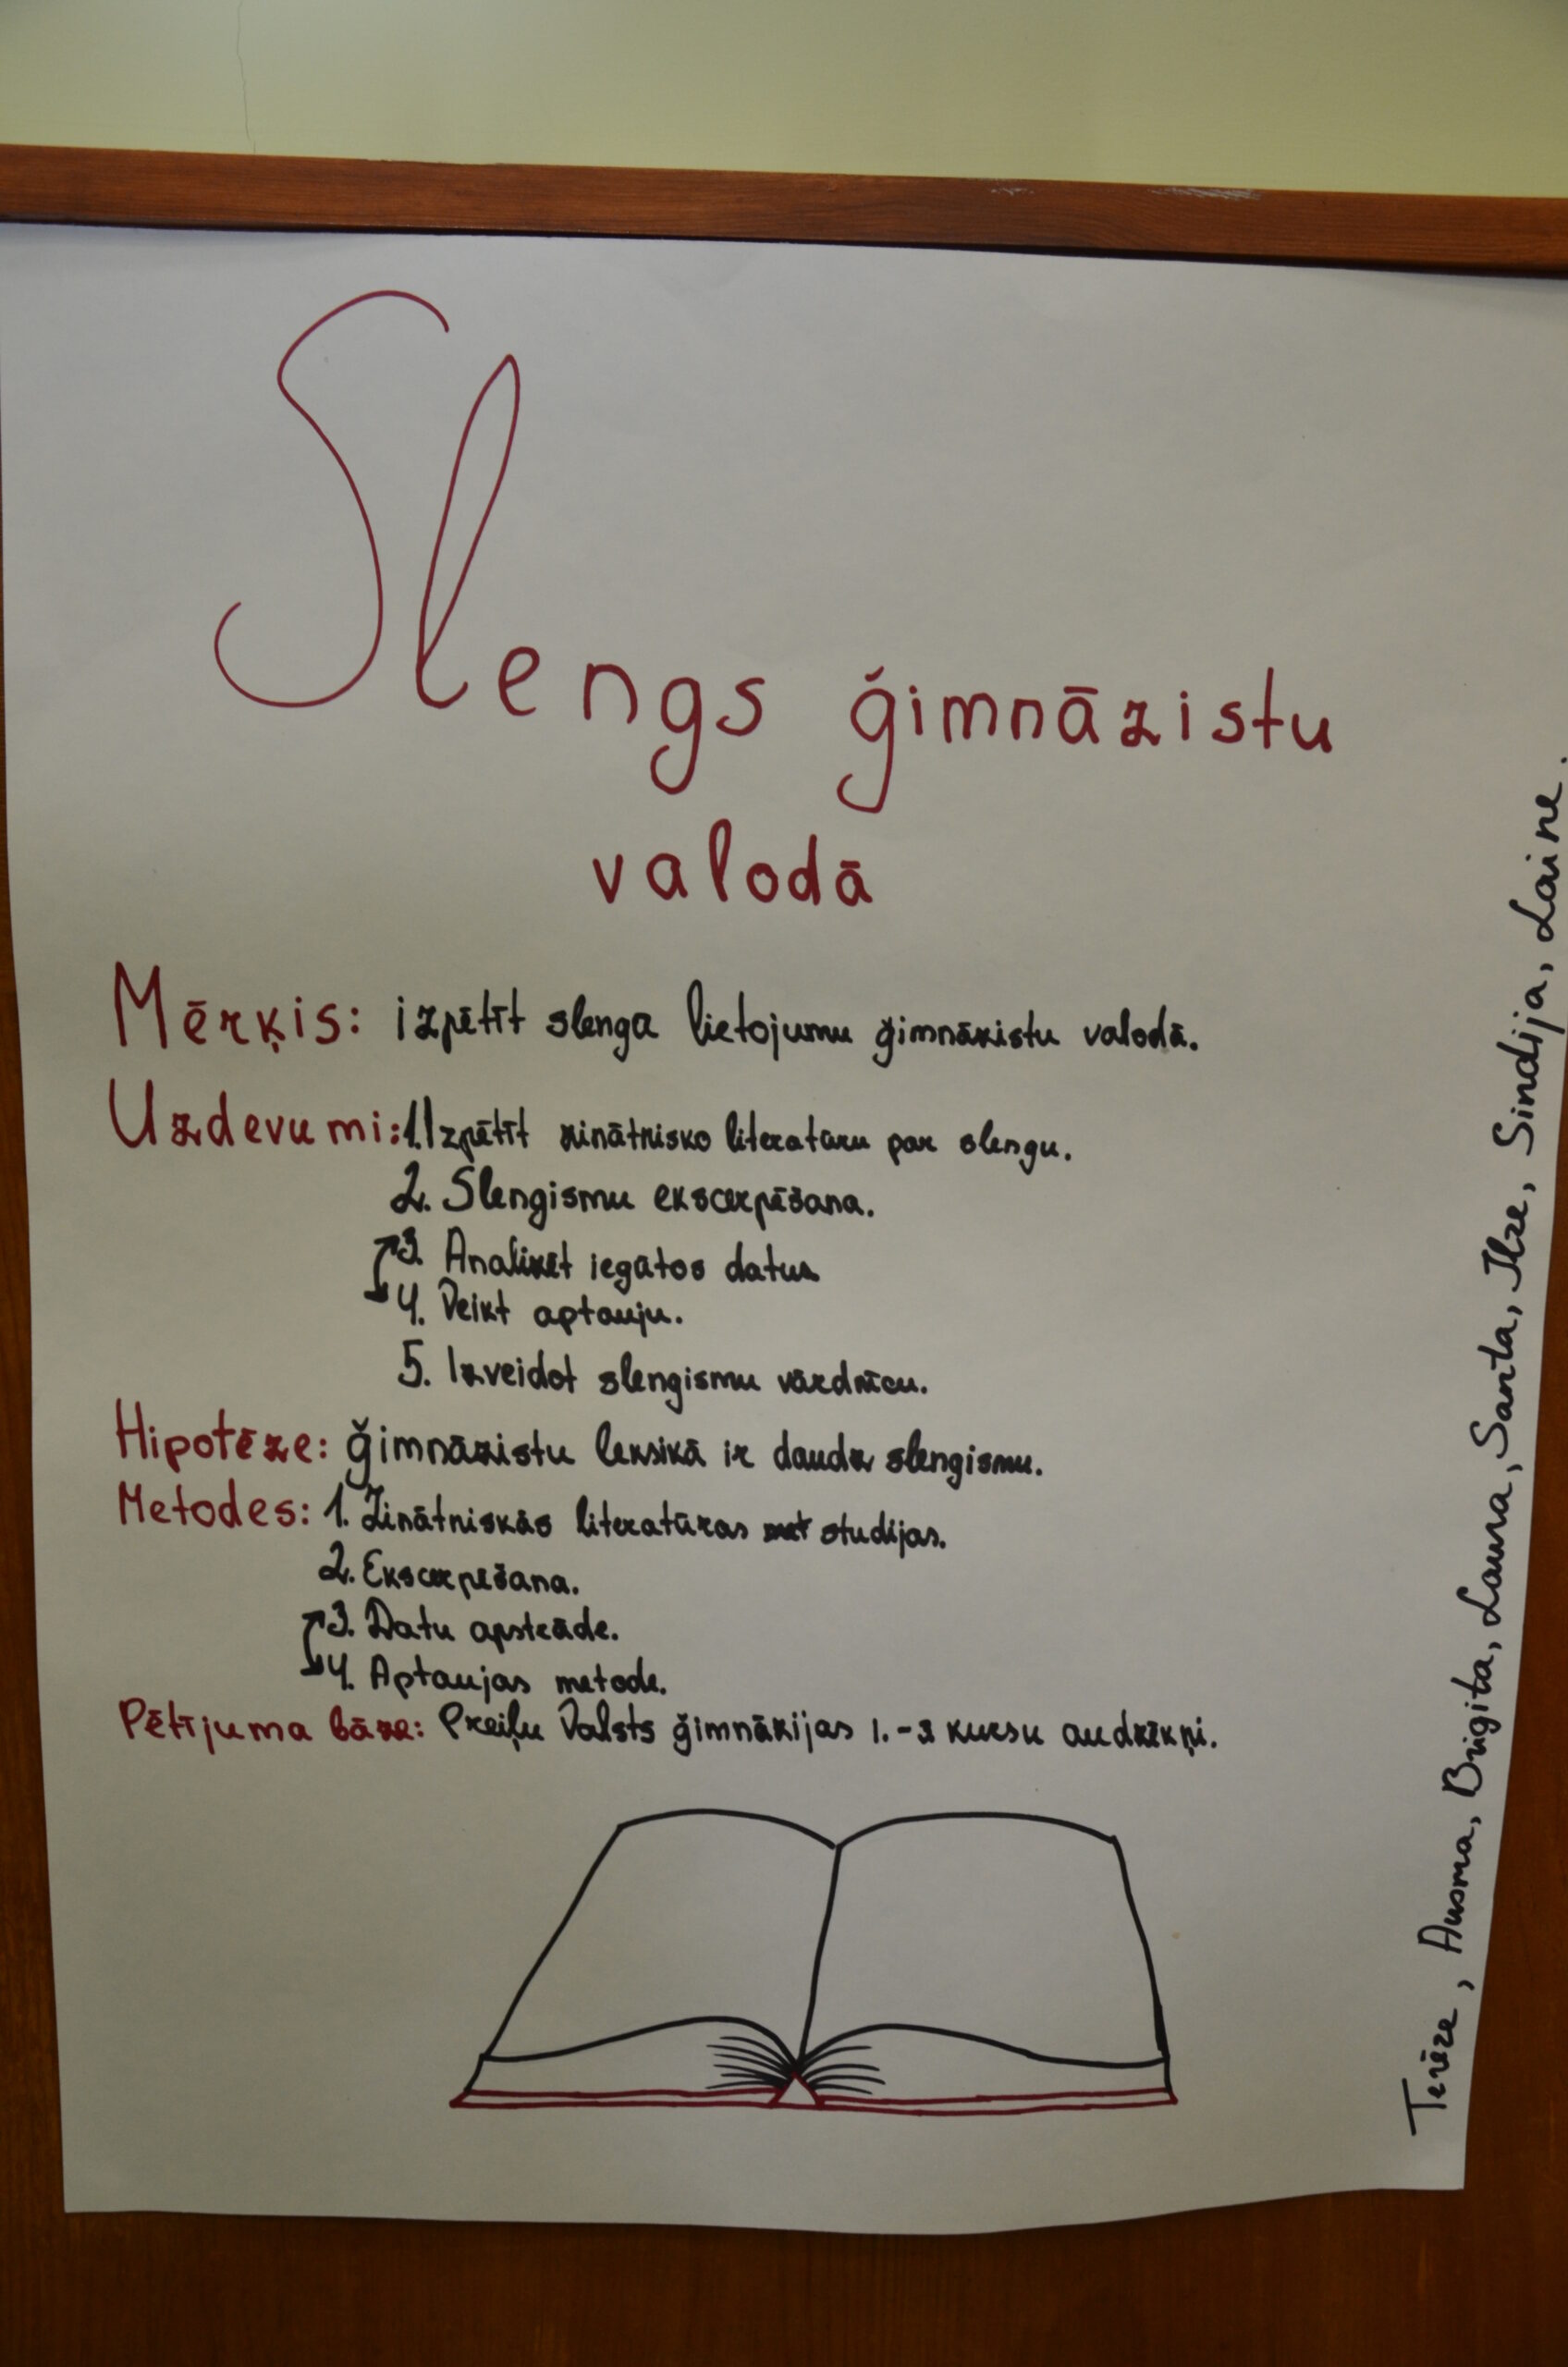 Slengs ģimnāzistu
valodā
Mērķis: izpētīt slenga lietojumu ģimnāzistu valodā.
Uzdevumi: 1. Izpētīt zinātnisko literatūru par slengu.
2. Slengismu ekscerpēšana.
3. Analizēt iegūtos datus
4. Veikt aptauju.
5. Izveidot slengismu vārdnīcu.
Hipotēze: ģimnāzistu leksikā ir daudz slengismu.
Metodes: 1. Zinātniskās literatūras studijas.
2. Ekscerpēšana.
3. Datu apstrāde.
4. Aptaujas metode.
Pētījuma bāze: Preiļu Valsts ģimnāzijas 1.-3 kursu audzēkņi.
Terēze, Ausma, Brigita, Laura, Santa, Ilze, Sindija, Laine.